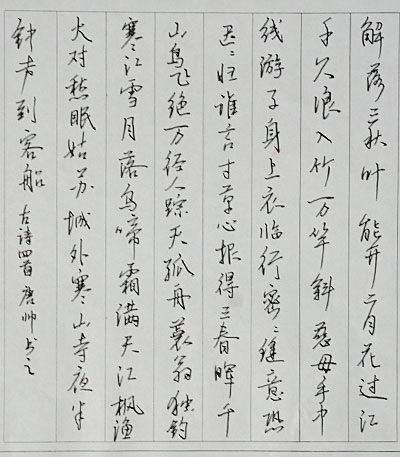 解落三秋叶能开二月花过江
千尺浪入竹万竿斜慈母手中
线游子身上衣临行密〻缝意恐
迟〻归谁言寸草心报得三春晖千
山鸟飞绝万径人踪灭孤舟蓑翁独钓
寒江雪月落乌啼霜满天江枫渔
火对愁眠姑苏城外寒山寺夜半
钟声到客船 古诗四首 唐帅书之